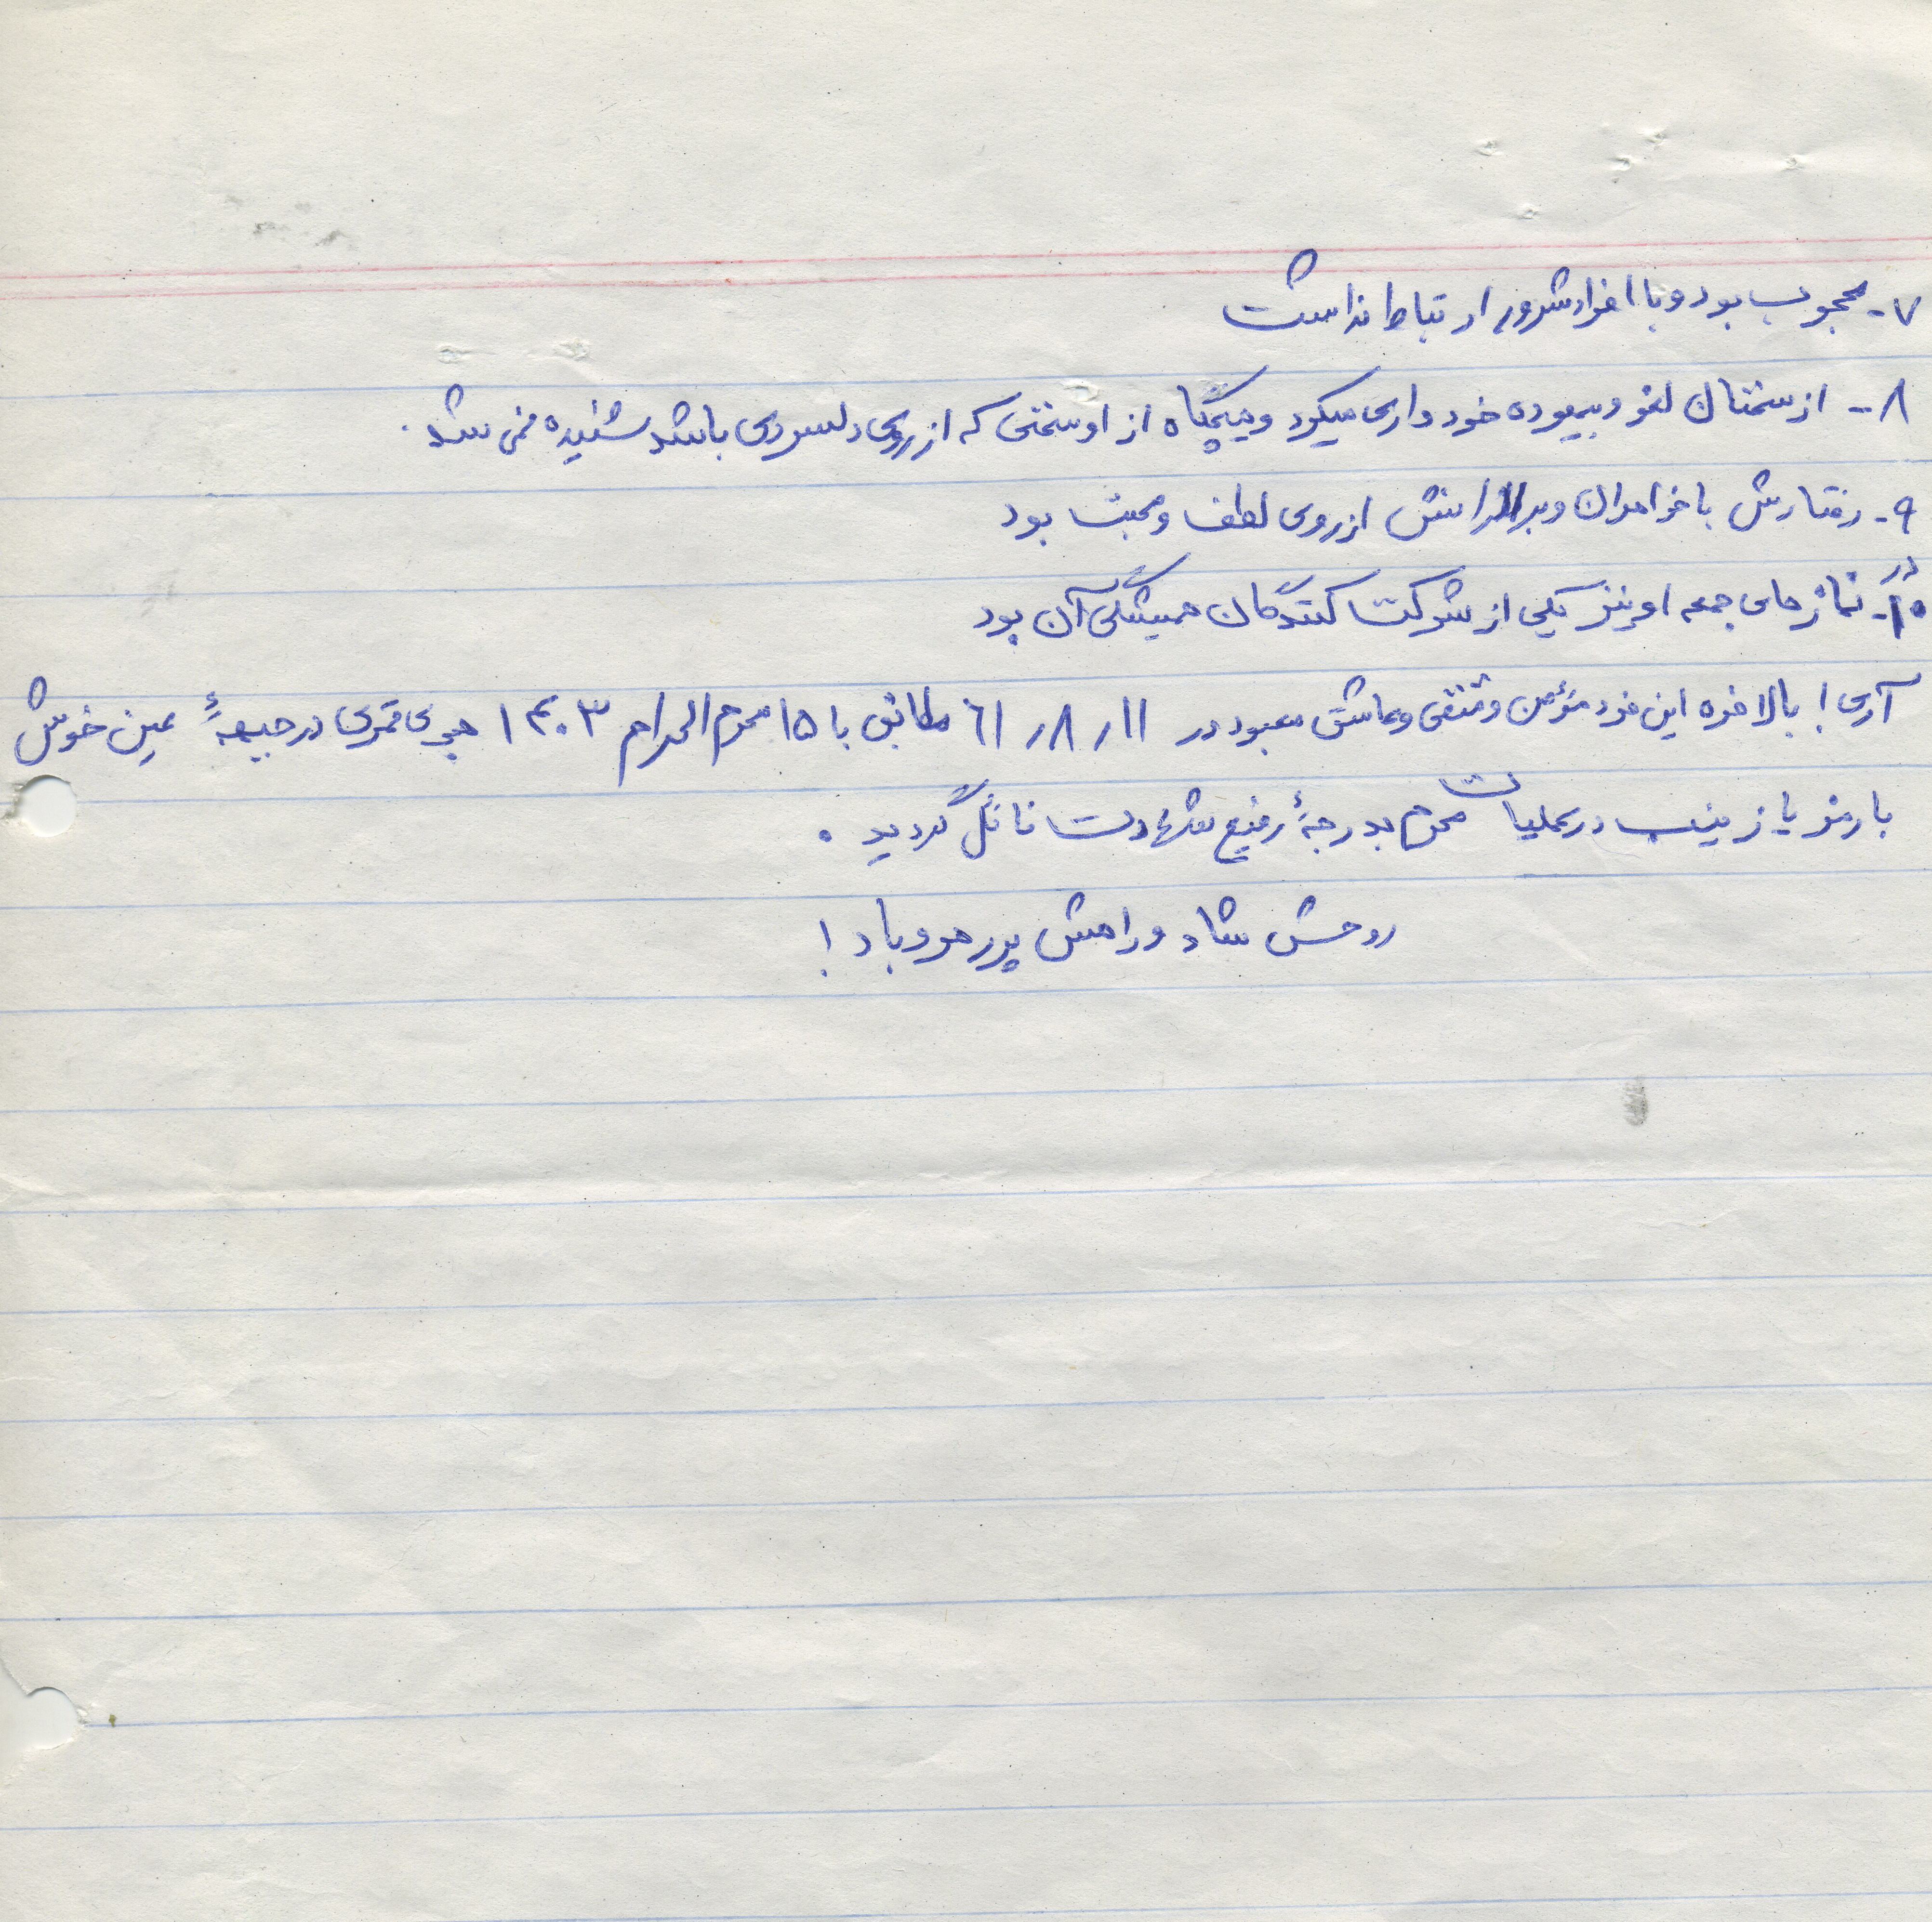 ۷- محجوب بود و با افراد شرور ارتباط نداشت
۸- از سخنان لغو و بیهوده خودداری میکرد و هیچگاه از او سخنی که از روی دلسردی باشد شنیده نمی شد.
۹- رفتارش با خواهران و برادرانش از روی لطف و محبت بود
۱۰- در نمازهای جمعه او نیز یکی از شرکت کنندگان همیشگی آن بود
آری! بالاخره این فرد مؤمن و متقی و عاشق معبود در ۶۱/۸/۱۱ مطابق با ۱۵ محرم الحرام ۱۴۰۳ هجری قمری در جبههٔ عین خوش
با رمز یا زینب در عملیات محرم بدرجهٔ رفیع شهادت نائل گردید.
روحش شاد و راهش پر رهرو باد!